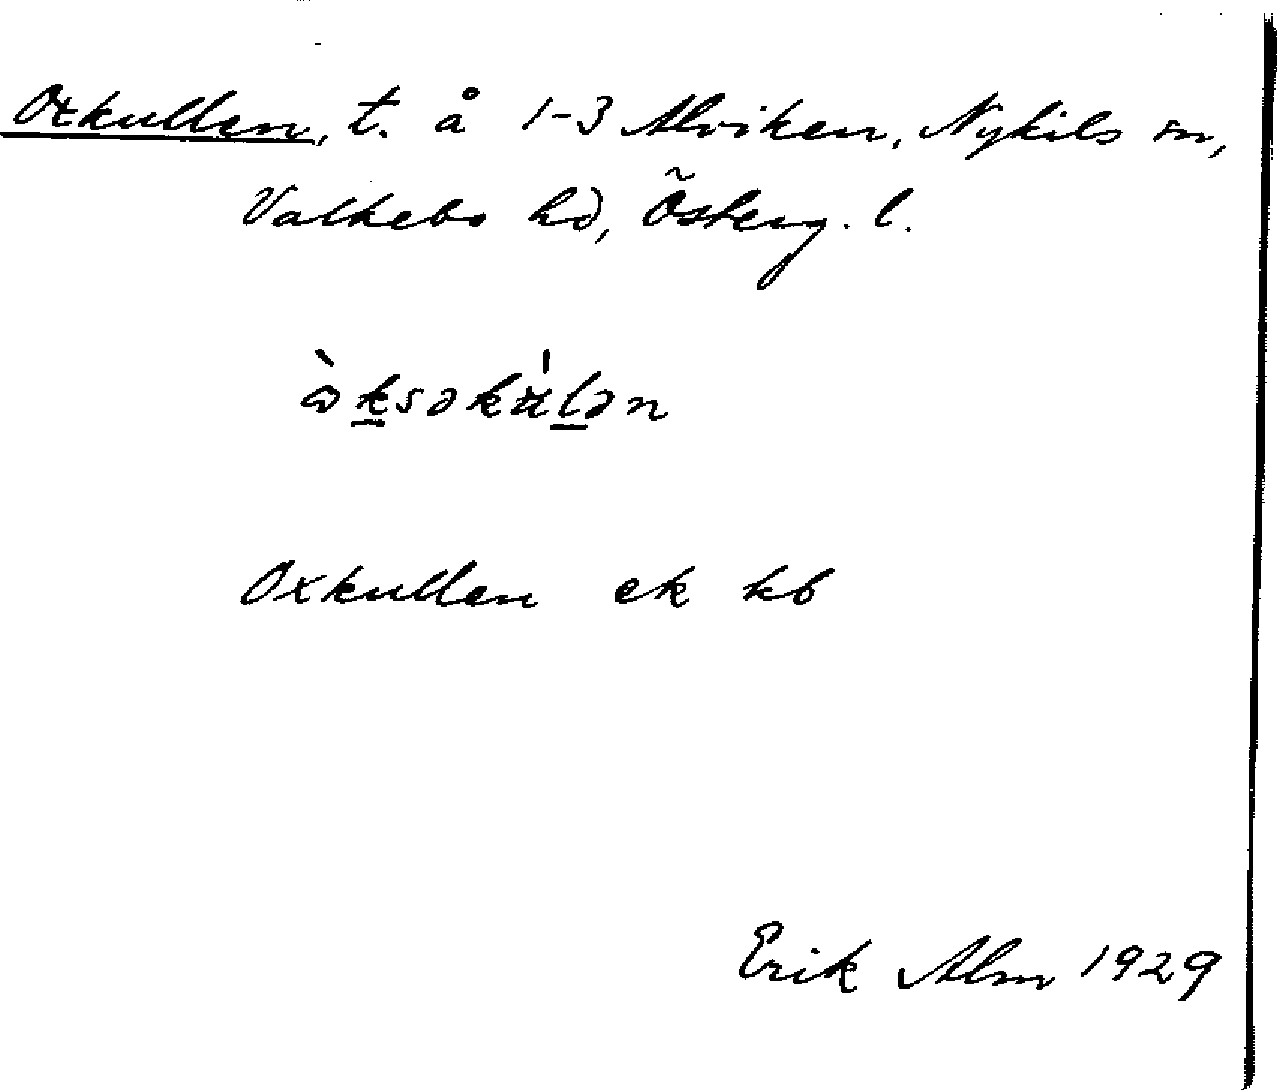 Oxkullen, t. å 1-3 Alviken, Nykils sn,
Valkebo hd, Österg. l.
òksəkʉ́lən
Oxkullen ek kb
Erik Alm 1929